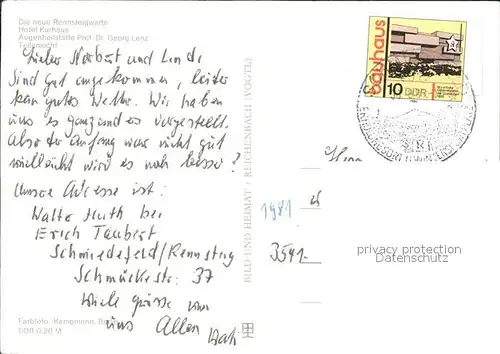 Die neue Rennsteigwarte
Hotel Kurhaus
Augenheilstätte Prof. Dr. Georg Lenz
Teilansicht
Lieber Norbert und Linda
Sind gut angekommen, leider
kein gutes Wetter. Wir haben
uns es ganz anders vorgestellt.
Also der Anfang war nicht gut
vielleicht wird es noch besser?
Unsere Adresse ist:
Walter Huth bei
Erich Taubert
Schmiedefeld/Rennsteig
Schmückestr. 37
Viele Grüsse von
uns Allen
Farbfoto: Kampmann,
DDR 0,20 M
BILD UND HEIMAT / REICHENBACH (VOGTL)
bauhaus
10 DDR
Herrn
1981
3541
privacy protection
Datenschutz